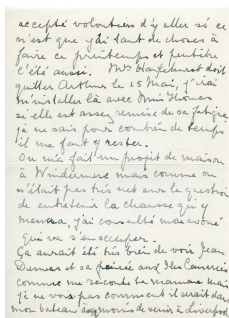 accepté volontiers d'y aller si ce
n'est que j'ai tant de choses à
faire ce printemps et peutêtre
l'été aussi. Mrs Hazlehurst doit
quitter Arthur le 15 Mai, j'irai
m'installer là avec Miss
si elle est assez remise de sa fatigue
je ne sais pour combien de temps
il me faut y rester.
On m'a fait un projet de maison
à Windermere mais comme on
n'était pas très net sur la question
de entretenir la chaussée qui y
menera, j'ai consulté mon avoué
qui va s'en occuper.
Ça aurait été très bien de voir Jean
Dumas et sa fiancée aux Iles Canaries
comme me raconte ta maman mais
je ne vois pas comment il serait dans
mon bateau à moins de venir à Liverpool